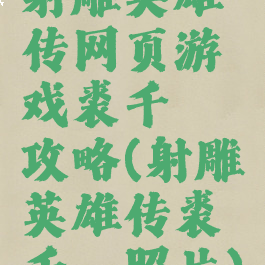 射雕英雄
传网页游
戏裘千
攻略(射雕
英雄传裘
千 照片)